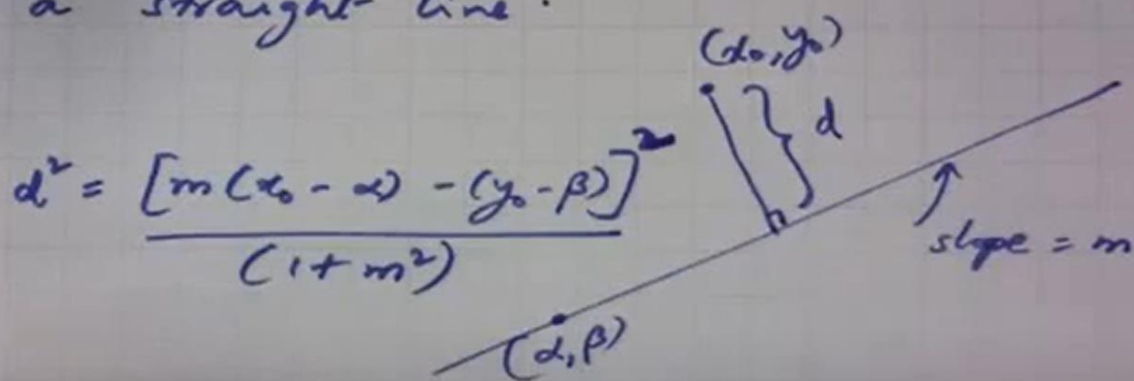 a straight line.
(x₀, y₀)
d
d² = [m(x₀ - α) - (y₀ - β)]²
(1 + m²)
slope = m
(α, β)